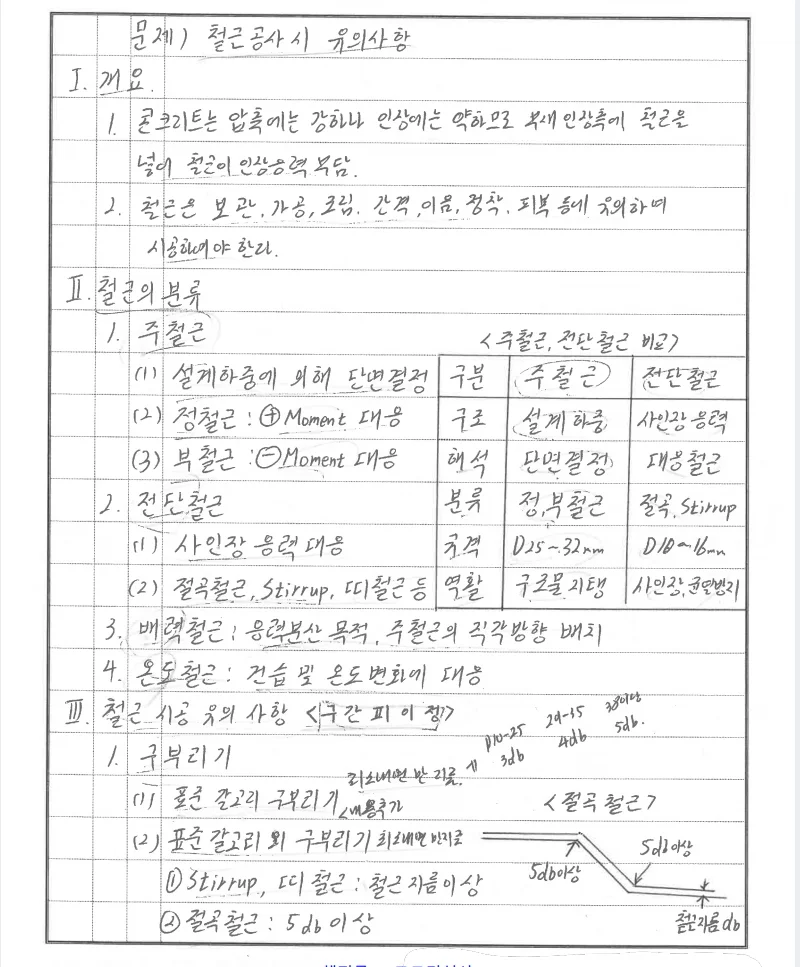 문제) 철근공사 시 유의사항
I. 개요.
1. 콘크리트는 압축에는 강하나 인장에는 약하므로 부재 인장측에 철근을
넣어 철근이 인장응력 부담.
2. 철근은 보관, 가공, 조립, 간격, 이음, 정착, 피복 등에 유의하며
시공하여야 한다.
II. 철근의 분류
1. 주철근
<주철근, 전단철근 비교>
(1) 설계하중에 의해 단면결정
(2) 정철근 : ⊕Moment 대응
(3) 부철근 : ⊖Moment 대응
2. 전단철근
(1) 사인장 응력 대응
(2) 절곡철근, Stirrup, 띠철근 등
구분 주철근 전단철근
구조 설계하중 사인장 응력
해석 단면결정 대응철근
분류 정,부철근 절곡, Stirrup
규격 D25~32mm D10~16mm
역할 구조물 지탱 사인장, 균열방지
3. 배력철근 : 응력분산 목적, 주철근의 직각방향 배치
4. 온도철근 : 건습 및 온도변화에 대응
III. 철근 시공 유의 사항 <구간 피 이 정>
1. 구부리기
D10~25 29~35 38이상
3db 4db 5db.
최소내면 반지름.
(1) 표준 갈고리 구부리기 <내용추가
<절곡철근>
(2) 표준 갈고리 외 구부리기 최소내면 반지름
① Stirrup, 띠철근 : 철근지름이상
② 절곡철근 : 5db 이상
5db이상
5db이상
철근지름 db